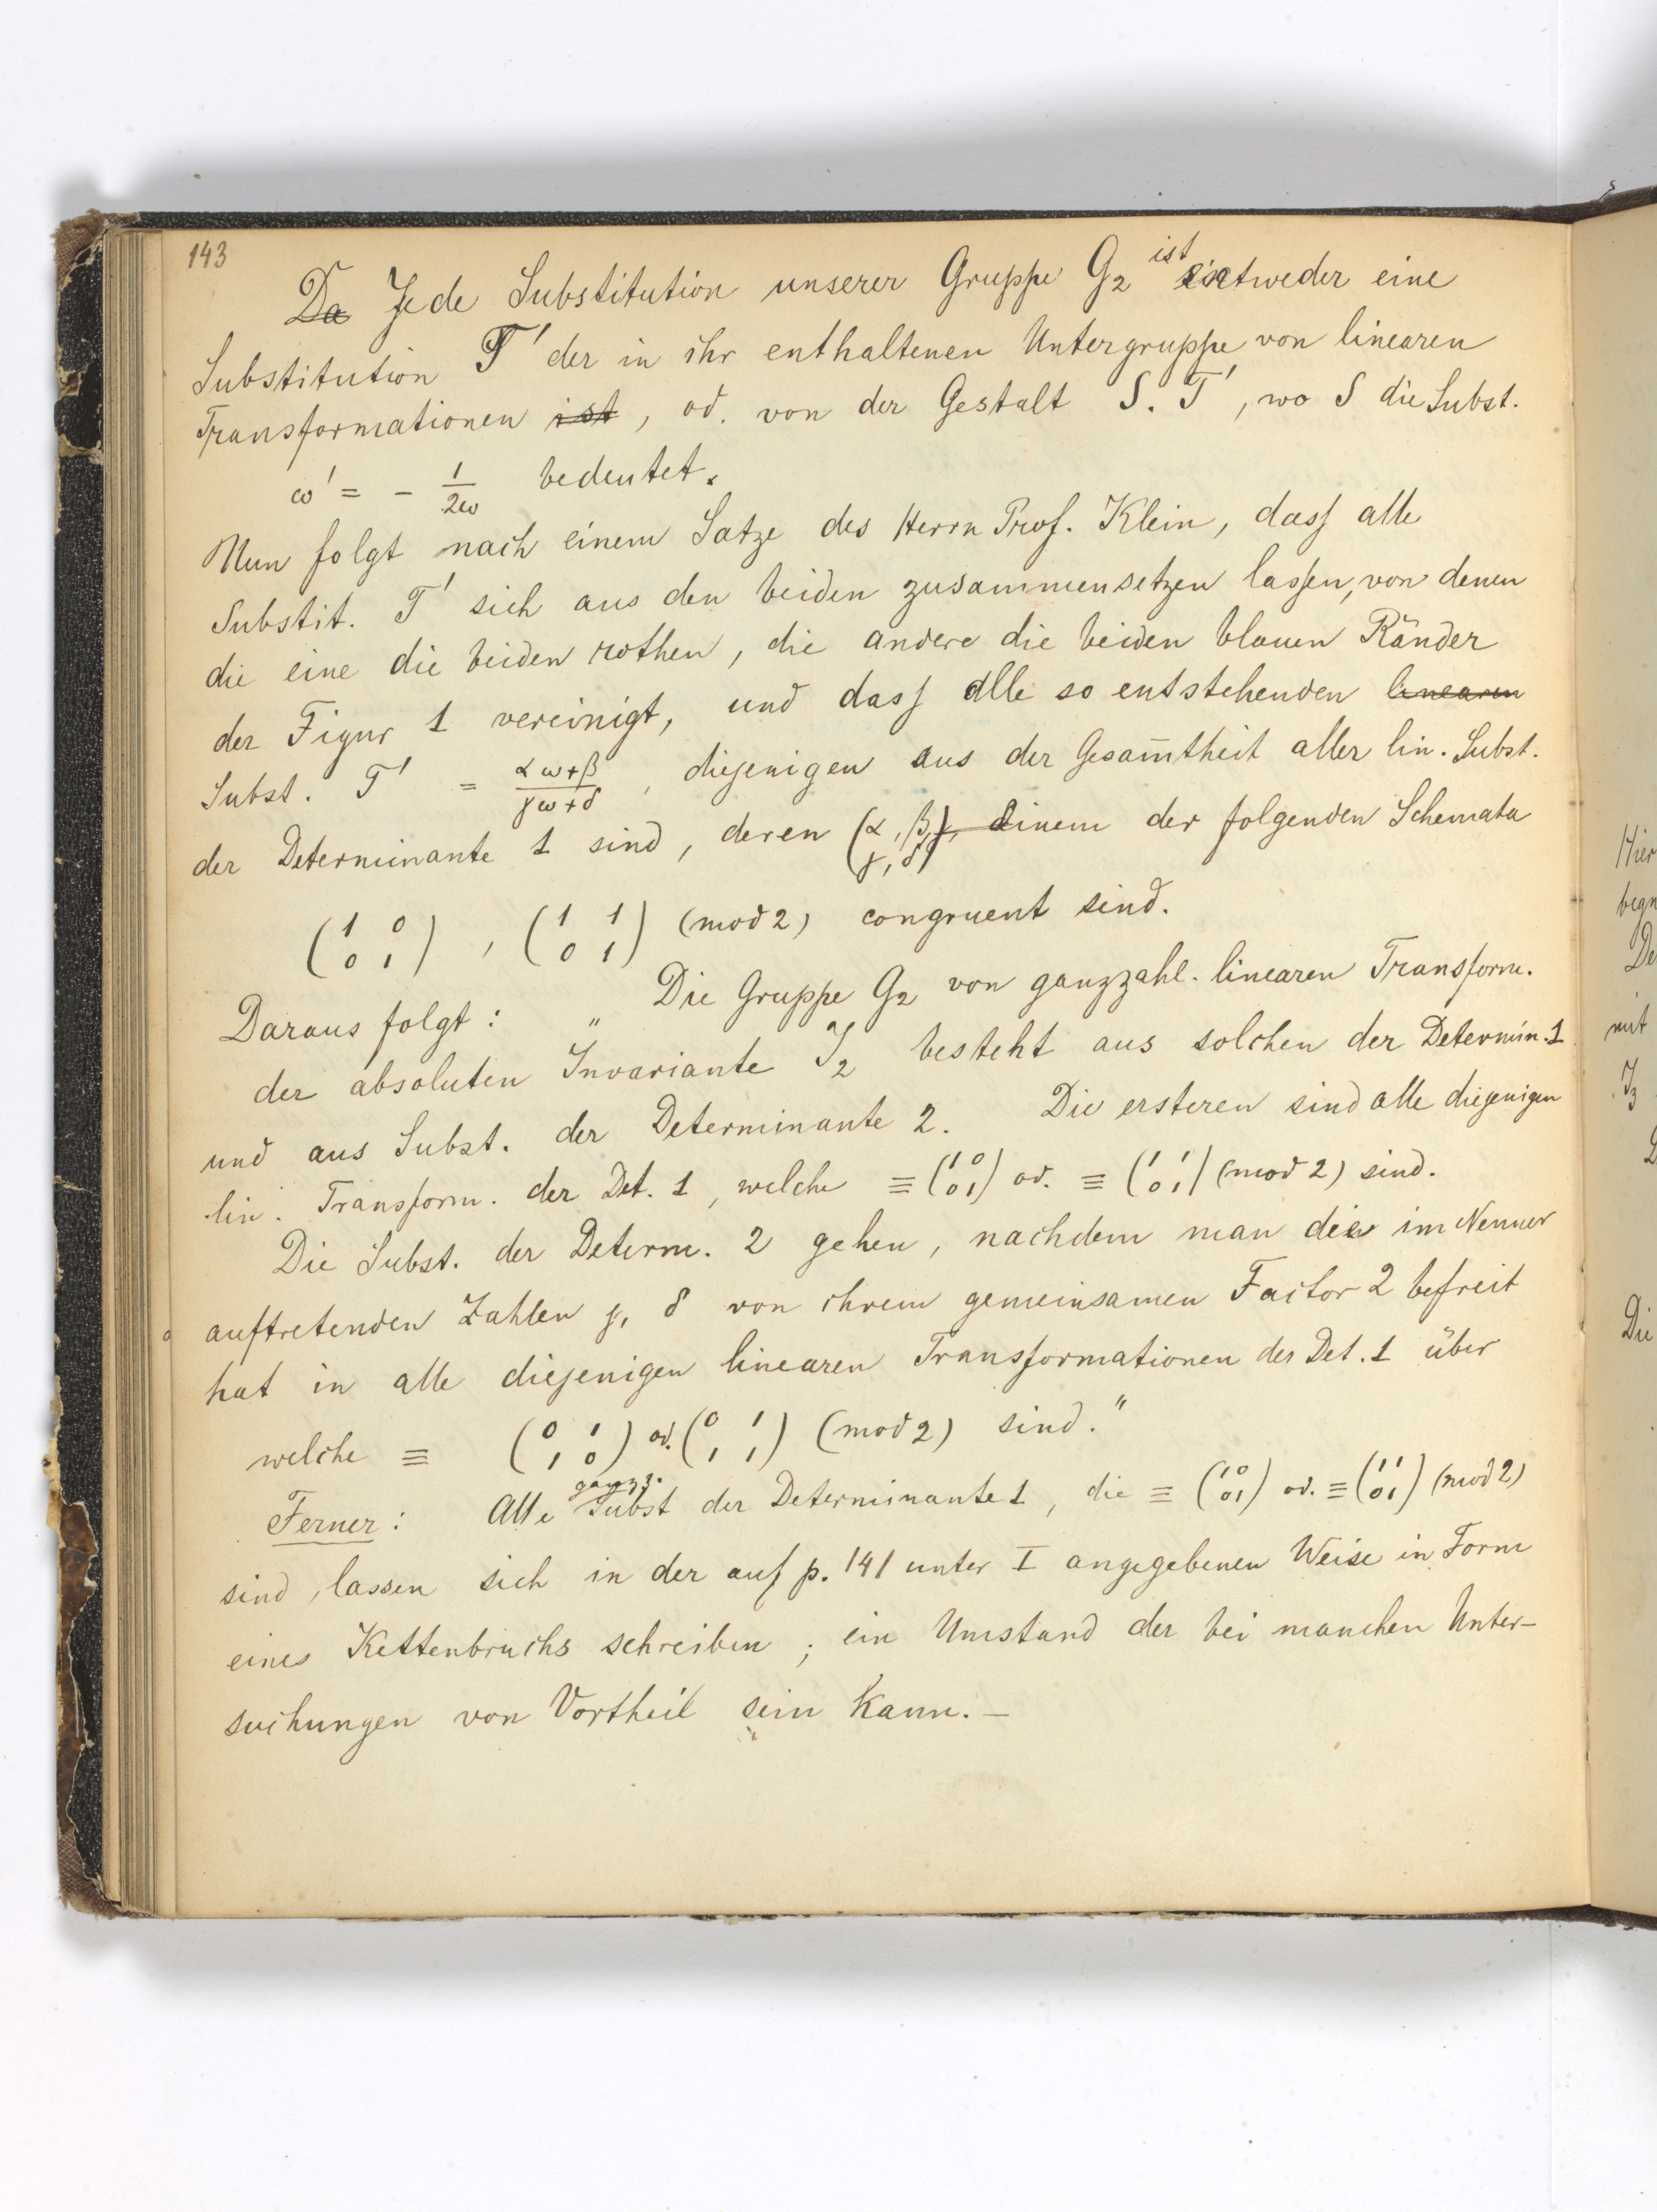 143
Da Jede Substitution unserer Gruppe G₂ ist entweder eine
Substitution T' der in ihr enthaltenen Untergruppe von linearen
Transformationen ist, od. von der Gestalt S. T', wo S die Subst.
ω' = - 1/2ω bedeutet.
Nun folgt nach einem Satze des Herrn Prof. Klein, dass alle
Substit. T' sich aus den beiden zusammensetzen lassen, von denen
die eine die beiden rothen, die andere die beiden blauen Ränder
der Figur 1 vereinigt, und dass alle so entstehenden linearen
Subst. T' = αω+β/γω+δ, diejenigen aus der Gesam̄theit aller lin. Subst.
der Determinante 1 sind, deren (α, β, γ, δ) einem der folgenden Schemata
(1 0 0 1), (1 1 0 1) (mod 2) congruent sind.
Daraus folgt: „Die Gruppe G₂ von ganzzahl. linearen Transform.
der absoluten Invariante J₂ besteht aus solchen der Determin. 1
und aus Subst. der Determinante 2. Die ersteren sind alle diejenigen
lin. Transform. der Det. 1, welche ≡ (1 0 0 1) od. ≡ (1 1 0 1) (mod 2) sind.
Die Subst. der Determ. 2 gehen, nachdem man die im Nenner
auftretenden Zahlen γ, δ von ihrem gemeinsamen Factor 2 befreit
hat in alle diejenigen linearen Transformationen der Det. 1 über
welche ≡ (0 1 1 0) od. (0 1 1 1) (mod 2) sind."
Ferner: Alle ganzz. Subst der Determinante 1, die ≡ (1 0 0 1) od. ≡ (1 1 0 1) (mod 2)
sind, lassen sich in der auf p. 141 unter I angegebenen Weise in Form
eines Kettenbruchs schreiben; ein Umstand der bei manchen Unter-
suchungen von Vortheil sein kann. –
Hier
De
mit
J₃
Die